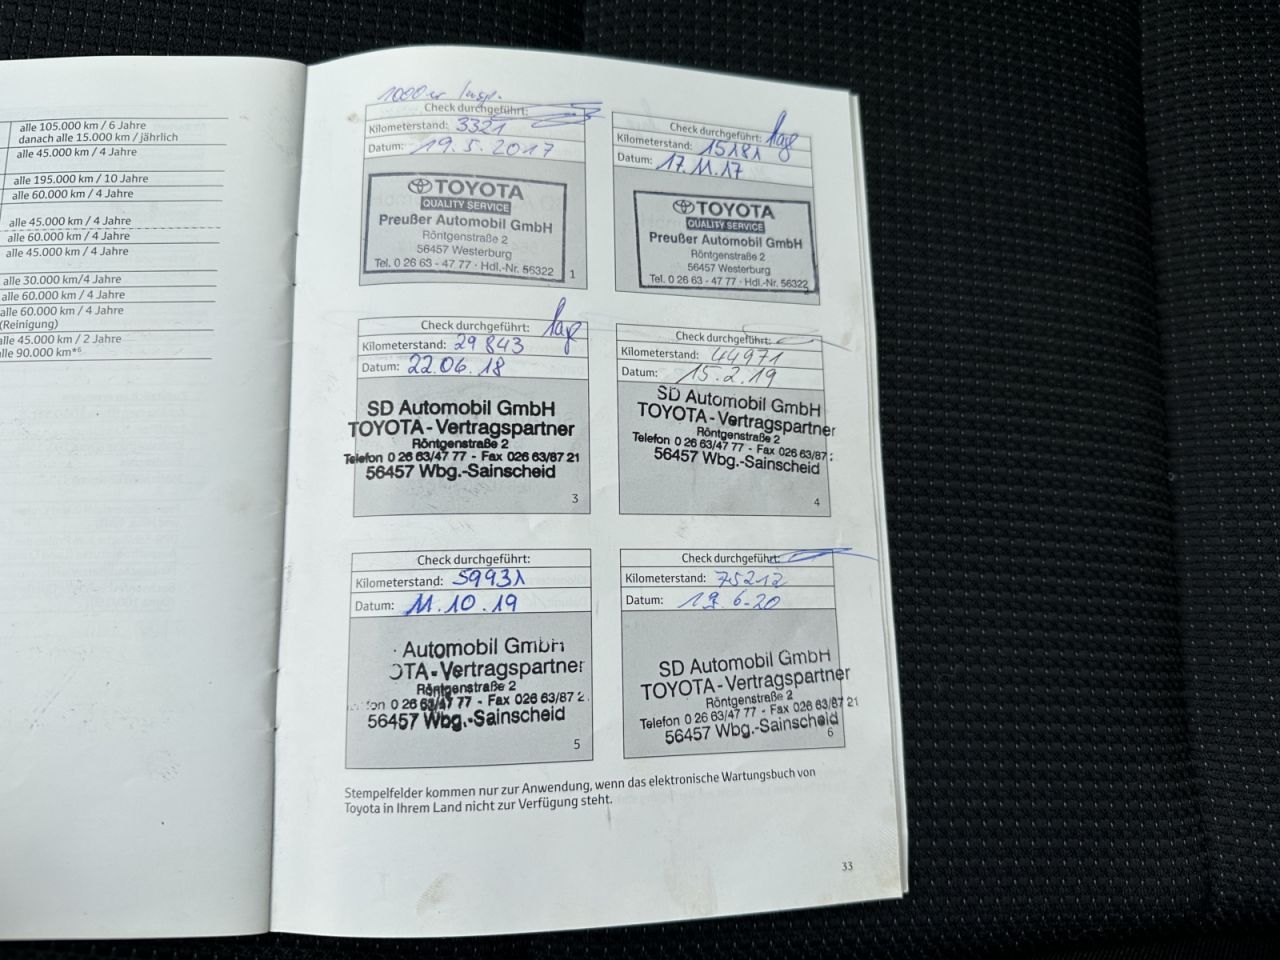 alle 105.000 km / 6 Jahre
danach alle 15.000 km / jährlich
alle 45.000 km / 4 Jahre
alle 195.000 km / 10 Jahre
alle 60.000 km / 4 Jahre
alle 45.000 km / 4 Jahre
alle 60.000 km / 4 Jahre
alle 45.000 km / 4 Jahre
alle 30.000 km/4 Jahre
alle 60.000 km / 4 Jahre
alle 60.000 km / 4 Jahre
(Reinigung)
alle 45.000 km / 2 Jahre
alle 90.000 km*6
1000er Insp.
Check durchgeführt:
Kilometerstand: 3321
Datum: 19.5.2017
TOYOTA
QUALITY SERVICE
Preußer Automobil GmbH
Röntgenstraße 2
56457 Westerburg
Tel. 0 26 63 - 47 77 · Hdl.-Nr. 56322
1
Check durchgeführt:
Kilometerstand: 15181
Datum: 17.11.17
TOYOTA
QUALITY SERVICE
Preußer Automobil GmbH
Röntgenstraße 2
56457 Westerburg
Tel. 0 26 63 - 47 77 · Hdl.-Nr. 56322
Check durchgeführt:
Kilometerstand: 29843
Datum: 22.06.18
SD Automobil GmbH
TOYOTA - Vertragspartner
Röntgenstraße 2
Telefon 0 26 63/47 77 - Fax 026 63/87 21
56457 Wbg.-Sainscheid
3
Check durchgeführt:
Kilometerstand: 44971
Datum: 15.2.19
SD Automobil GmbH
TOYOTA - Vertragspartner
Röntgenstraße 2
Telefon 0 26 63/47 77 - Fax 026 63/87
56457 Wbg.-Sainscheid
4
Check durchgeführt:
Kilometerstand: 59931
Datum: 11.10.19
Automobil GmbH
OTA - Vertragspartner
Röntgenstraße 2
fon 0 26 63/47 77 - Fax 026 63/87 2
56457 Wbg.-Sainscheid
5
Check durchgeführt:
Kilometerstand: 75212
Datum: 19.6.20
SD Automobil GmbH
TOYOTA - Vertragspartner
Röntgenstraße 2
Telefon 0 26 63/47 77 - Fax 026 63/87 21
56457 Wbg.-Sainscheid
6
Stempelfelder kommen nur zur Anwendung, wenn das elektronische Wartungsbuch von
Toyota in Ihrem Land nicht zur Verfügung steht.
33